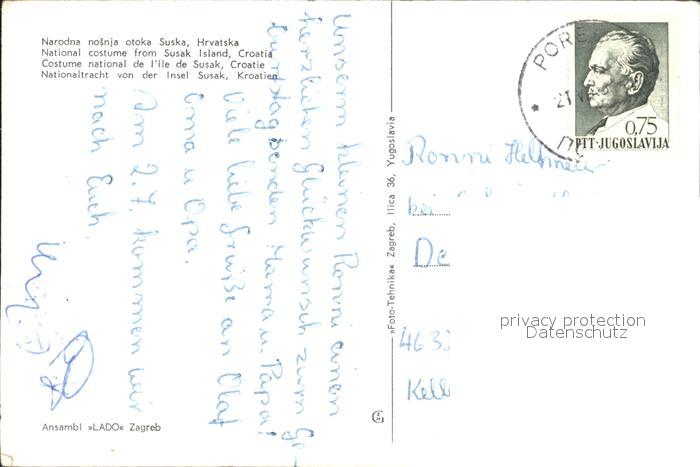 Narodna nošnja otoka Suska, Hrvatska
National costume from Susak Island, Croatia
Costume national de l'ile de Susak, Croatie
Nationaltracht von der Insel Susak, Kroatien
Unserm kleinen Ronni einen
herzlichen Glückwunsch zum Ge-
burtstag senden Mama u. Papa!
Viele liebe Grüße an Olaf
Oma u. Opa.
Am 2.7. kommen wir
nach Euch.
Ansambl »LADO« Zagreb
»Foto-Tehnika« Zagreb, Ilica 36, Yugoslavia
POREČ
21
0,75
PTT·JUGOSLAVIJA
Ronni
bei
De
463
Kell
privacy protection
Datenschutz